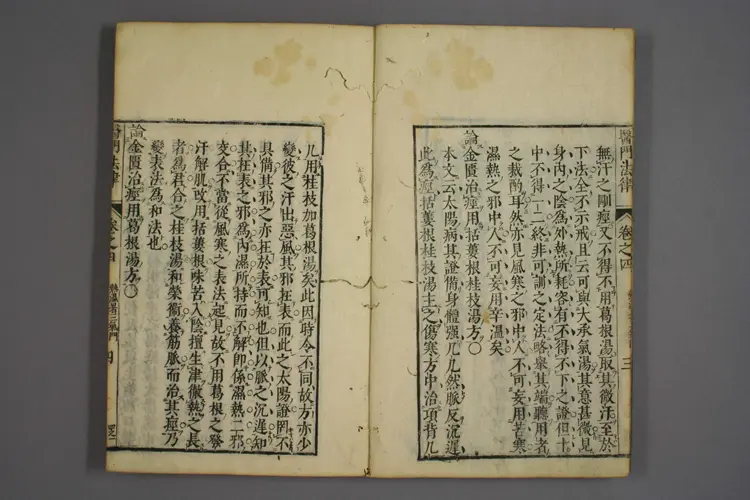 醫門法律
卷之四
三
無汗之剛痙又不得不用葛根湯取其微汗至於
下法全不示戒且云可與大承氣湯其意甚微見
身內之陰為外熱所耗容有不得不下之證但十
中不得一二終非可訓之定法略舉其端聽用者
之裁酌耳然亦見風寒之邪中人不可妄用苦寒
濕熱之邪中人不可妄用辛溫矣
論金匱治痙用括蔞根桂枝湯方〇
本文云太陽病其證備身體强几几然脈反沉遲
此為痙括蔞根桂枝湯主之傷寒方中治項背几
几用桂枝加葛根湯矣此因時令不同故方亦少
變彼之汗出惡風其邪在表而此之太陽證罔不
具備其邪之亦在於表可知也但以脈之沉遲知
其在表之邪為內濕所持而不解即係濕熱二邪
交合不當從風寒之表法起見故不用葛根之發
汗解肌改用括蔞根味苦入陰擅生津徹熱之長
者為君合之桂枝湯和榮衛養筋脈而治其痙乃
變表法為和法也
論金匱治痙用葛根湯方〇
醫門法律
卷之四
熱濕暑三氣門
四